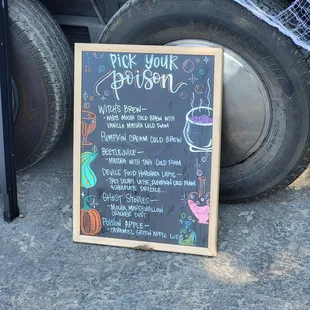 PICK YOUR
poison
WITCH'S BREW-
- WHITE MOCHA COLD BREW WITH
VANILLA MATCHA COLD FOAM
PUMPKIN CREAM COLD BREW
BEETLEJUICE-
- MATCHA WITH TARO COLD FOAM
DEVILS FOOD PUMPKIN LATTE-
COLD FOAM
& CHOCOLATE DRIZZLE
GHOST STORIES-
- MOCHA MARSHMALLOW
CRACKER DUST
POISON APPLE-
- CARAMEL GREEN APPLE